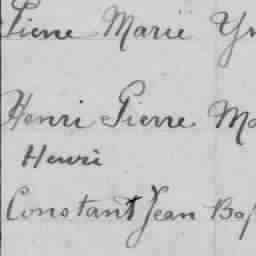 Pierre Marie Yv
Henri Pierre Ma
Henri
Constant Jean Bap